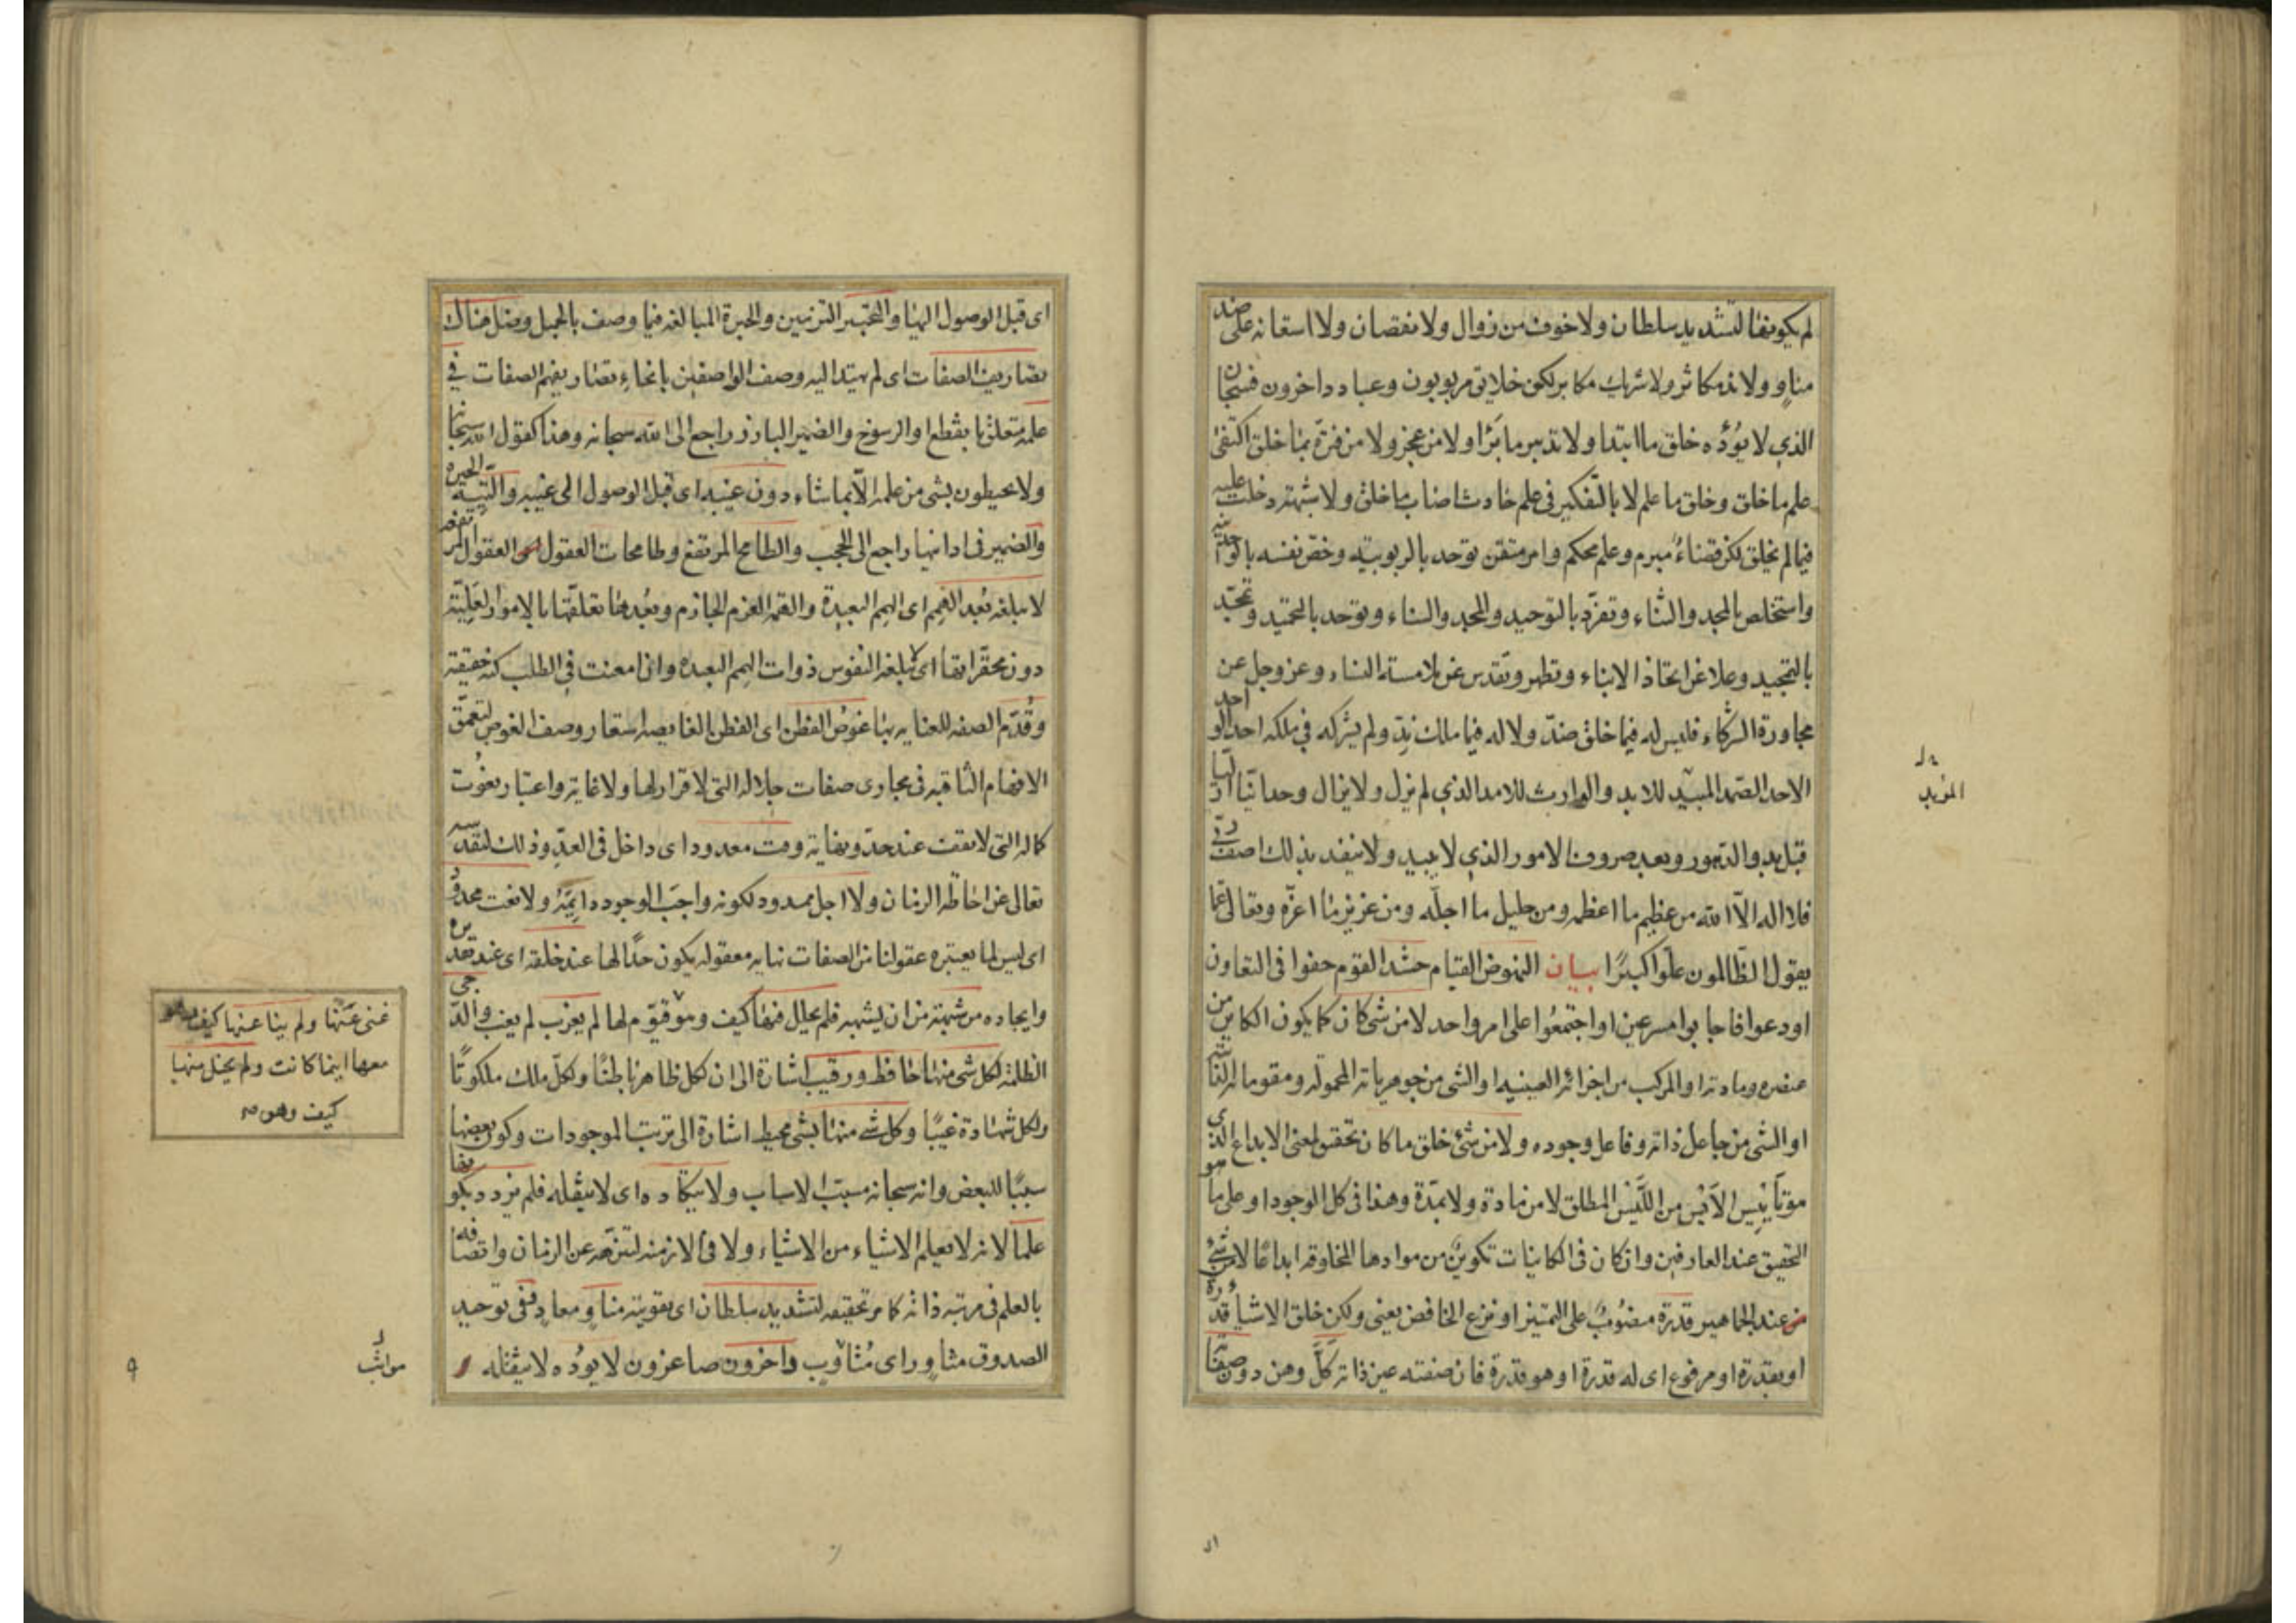 لم يكونها لتشديد سلطان ولا خوف من زوال ولا نقصان ولا استعانة على ضد
مناو ولا ند مكاثر ولا شريك مكابر لكن خلايق مربوبون وعباد داخرون فسبحان
الذي لا يؤده خلق ما ابتدا ولا تدبير ما برا ولا من عجز ولا من فترة بما خلق اكتفى
علم ما خلق وخلق ما علم لا بالتفكير في علم حادث اصاب ما خلق ولا شبهة دخلت عليه
فيما لم يخلق لكن قضاء مبرم وعلم محكم وامر متقن توحد بالربوبية وخص نفسه بالوحدانية
واستخلص بالمجد والثناء وتفرد بالتوحيد والمجد والسناء وتوحد بالتحميد وتمجد
بالتمجيد وعلا عن اتخاذ الابناء وتطهر وتقدس عن ملامسة النساء وعز وجل عن
مجاورة الشركاء فليس له فيما خلق ضد ولا له فيما ملك ند ولم يشركه في ملكه احد الواحد
الاحد الصمد المبيد للابد والوارث للامد الذي لم يزل ولا يزال وحدانيا ازليا
قبل بدو الدهور وبعد صروف الامور الذي لا يبيد ولا ينفد بذلك اصف ربي
فلا اله الا الله من عظيم ما اعظمه ومن جليل ما اجله ومن عزيز ما اعزه وتعالى عما
يقول الظالمون علوا كبيرا بيان النهوض القيام حشد القوم حفوا في التعاون
او دعوا فاجابوا مسرعين او اجتمعوا على امر واحد لا من شئ كان كما يكون الكاين من
عنصره ومادته او المركب من اجزائه العينيه او الشئ من جوهرياته المحمولة ومقوماته
او الشئ من جاعل ذاته وفاعل وجوده ولا من شئ خلق ما كان تحقيق لمعنى الابداع الذي هو
تاييس الايس من الليس المطلق لا من مادة ولا بمدة وهذا في كل الوجود او على ما هو
التحقيق عند العارفين وان كان في الكاينات تكوين من موادها المخلوقه ابداعا لا من شئ
عند الجماهير قدرة منصوب على التميز او نزع الخافض يعني ولكن خلق الاشياء قدرة
او بقدرة او مرفوع اى له قدرة او هو قدرة فان صفته عين ذاته كل وهن دون صفاته
المؤبد
اى
اى قبل الوصول اليها والتحبير التزيين والحبرة المبالغه فيما وصف بالجميل وضل هناك
تصاريف الصفات اى لم يهتد اليه وصف الواصفين بانحاء تصاريفهم الصفات في
علمه متعلق بانقطع او الرسوخ والضمير البارز راجع الى الله سبحانه وهذا كقول الله سبحانه
ولا يحيطون بشئ من علمه الا بما شاء دون غيبه اى قبل الوصول الى غيبه والتيه الحيرة
والضمير في ادانيها راجع الى الحجب والطامح المرتفع وطامحات العقول العقول المرتفعه
لا يبلغه بعد الهمم اى الهمم البعيدة والهمة العزم الجازم وبعدها تعلقها بالامور العلية
دون محقراتها اى لا تبلغه النفوس ذوات الهمم البعيده وان امعنت في الطلب كنه حقيقته
وقدم الصفه للعناية بها غوص الفطن اى الفطن الغايصه استعار وصف الغوص لتعمق
الافهام الثاقبه في مجارى صفات جلاله التى لا قرار لها ولا غاية واعتبار نعوت
كماله التى لا تقف عند حد ونهاية وقت معدود اى داخل في العد وذلك لتقدسه
تعالى عن احاطه الزمان ولا اجل ممدود لكونه واجب الوجود دايمة ولا نعت محدود
اى ليس لما يعتبره عقولنا من الصفات نهايه معقوله يكون حدا لها عند خلقه اى عند تقديره
وايجاده من شبهته من ان يشبهه فلم يحلل فيها كيف وهو مقوم لها لم يعزب لم يغب والدجى
الظلمة لكل شئ منها حافظ ورقيب اشارة الى ان لكل ظاهر باطنا ولكل ملك ملكوتا
ولكل شهادة غيبا وكل شئ منها بشئ محيط اشارة الى ترتب الموجودات وكون بعضها
سببا للبعض وانه سبحانه مسبب الاسباب ولا يتكاده اى لا يثقله فلم يزدد بكونها
علما لانه لا يعلم الاشياء من الاشياء ولا في الازمنه لتنزهه عن الزمان واتصافه
بالعلم في مرتبه ذاته كما مر تحقيقه لتشديد سلطان اى تقويته مناو ومعاد وفى توحيد
الصدوق مثاور اى مثاوب داخرون صاغرون لا يؤده لا يثقله
غنى عنها ولم ينا عنها كيف وهو
معها اينما كانت ولم يخل منها
كيف وهو صح
مواثب
٩